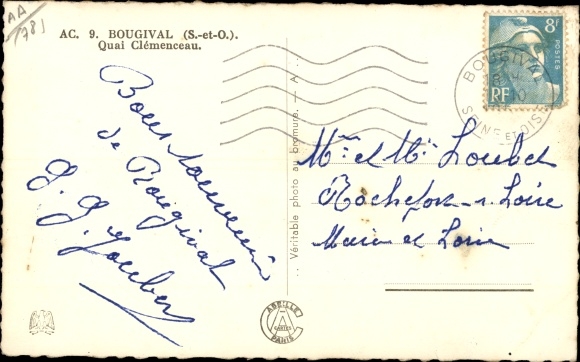 AA
AC. 9. BOUGIVAL (S.-et-O.).
Quai Clémenceau.
Bon souvenir
de Bougival
Véritable photo au bromure. — A
8F
POSTES
RF
BOUGIVAL
SEINE ET OISE
Mr et Me Loubet
Rochefort s. Loire
Maine et Loire
ABEILLE
CARTES
PARIS